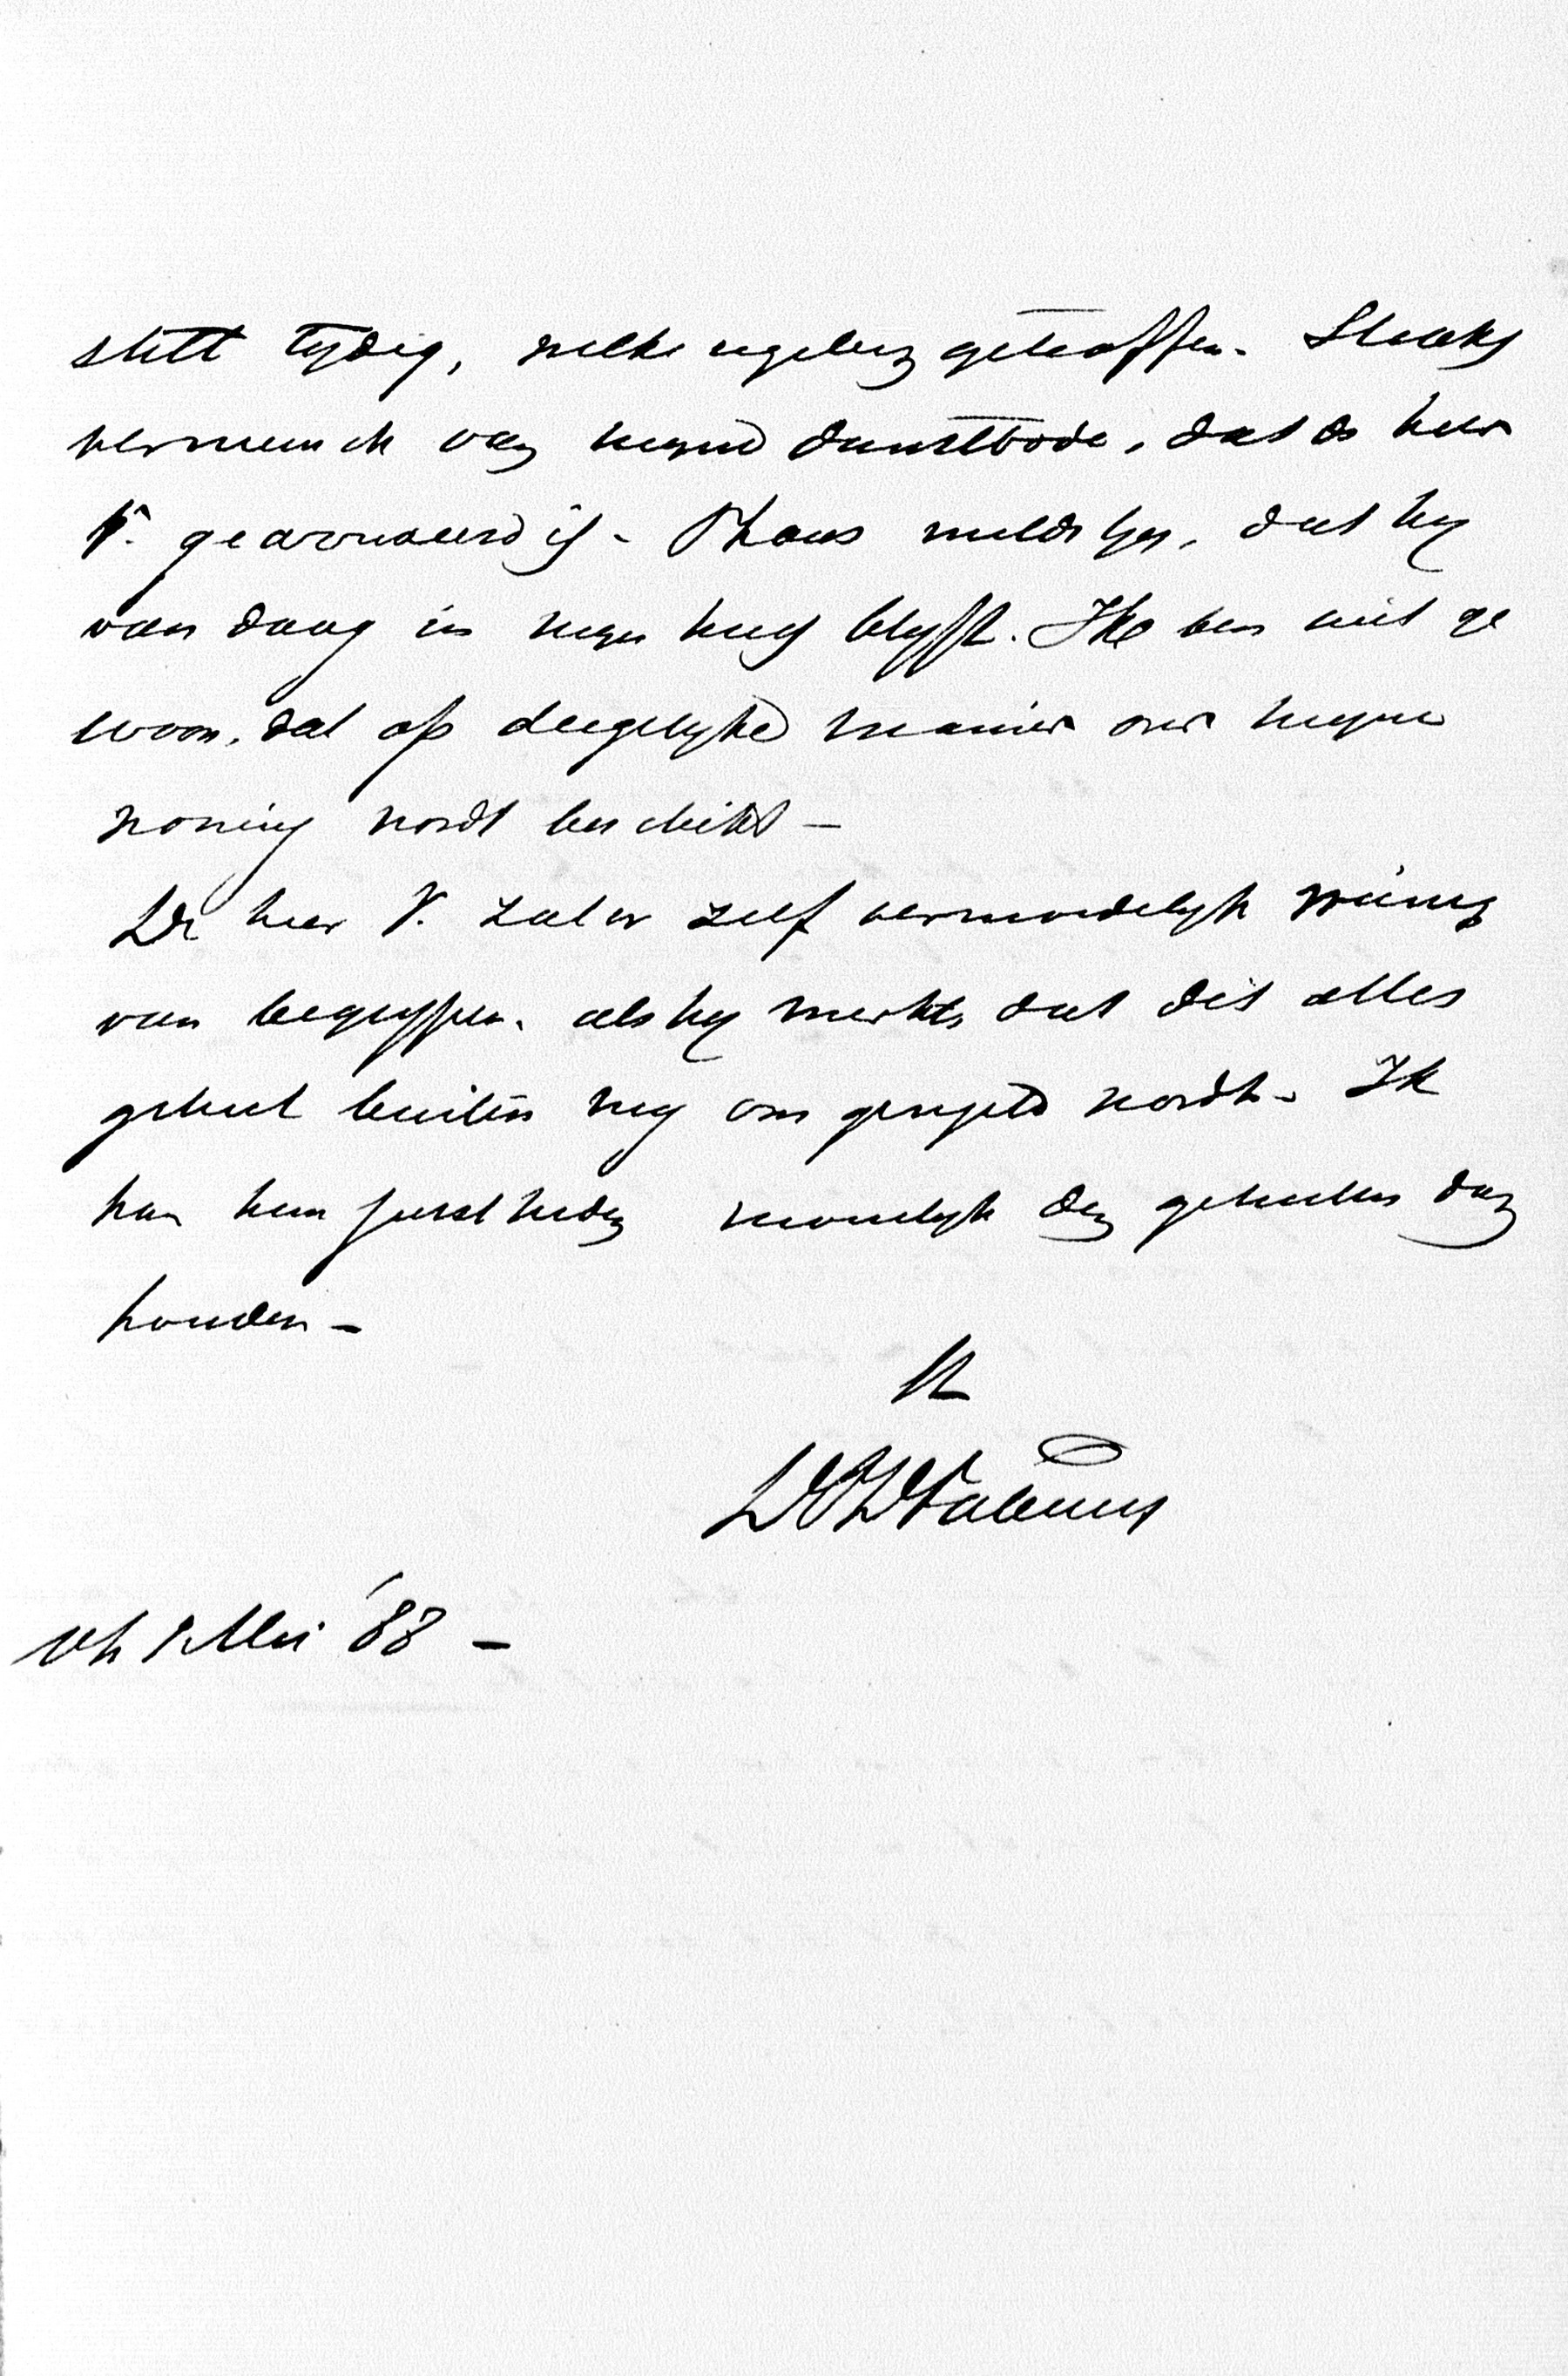 stelt tydig, welke regeling getroffen. Straks
verneem ik van mijne dienstbode, dat de heer
V. gearriveerd is. Thans meldt hy, dat hy
van daag in myn huis blyft. Ik ben niet ge
woon, dat op dergelyke manier over myne
woning wordt beschikt –
De heer V. zal er zelf vermoedelyk weinig
van begrypen, als hy merkt, dat dit alles
geheel buiten my om geregeld wordt. Ik
kan hem juist heden moeielyk den geheelen dag
houden –
Mei '88 –